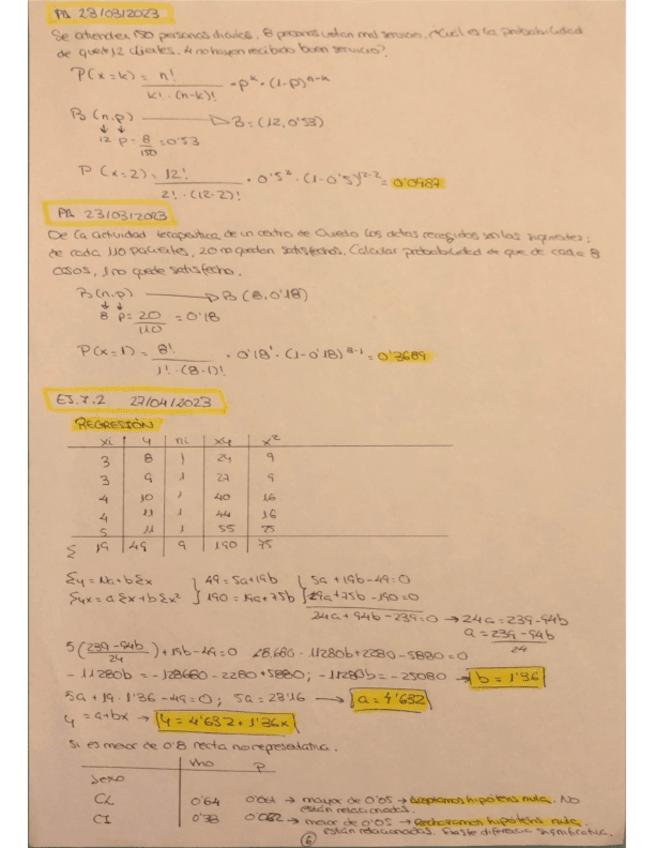 PA 23/03/2023
Se atienden 150 personas diarias, 8 personas votan mal servicio, ¿Cuál es la probabilidad
de que 12 clientes, 4 no hayan recibido buen servicio?
P(x=k) = n! / k!·(n-k)! · p^k · (1-p)^n-k
B (n,p) → B=(12, 0'53)
12 p = 8/150 = 0'53
P (x=2) = 12! / 2!·(12-2)! · 0'5² · (1-0'5)^12-2 = 0'0487
PA 23/03/2023
De la actividad terapeutica de un centro de Oviedo los datos recogidos son los siguientes;
de cada 110 pacientes, 20 no quedan satisfechos. Calcular probabilidad de que de cada 8
casos, 1 no quede satisfecho.
B(n,p) → B (8, 0'18)
8 p = 20/110 = 0'18
P(x=1) = 8! / 1!·(8-1)! · 0'18¹ · (1-0'18)^8-1 = 0'3689
EJ.7.2 27/04/2023
REGRESIÓN
xi y ni xy x²
3 8 1 24 9
3 9 1 27 9
4 10 1 40 16
4 11 1 44 16
5 11 1 55 75
Σ 19 49 9 190 75
Σy = Na + bΣx } 49 = 5a+19b { 5a + 19b - 49 = 0
Σyx = aΣx + bΣx² } 190 = 19a + 75b { 19a + 75b - 190 = 0
24a + 94b - 239 = 0 → 24a = 239 - 94b
a = 239 - 94b / 24
5(239-94b / 24) + 19b - 49 = 0 28680 - 11280b + 2280 - 5880 = 0
- 11280b = - 128680 - 2280 + 5880; - 11280b = - 25080 → b = 1'36
5a + 19 · 1'36 - 49 = 0; 5a = 23'16 → a = 4'632
y = a+bx → y = 4'632 + 1'36x
Si es menor de 0'8 recta no representativa.
rho P
Sexo
CL 0'64 0'061 → mayor de 0'05 → Aceptamos hipótesis nula. No
están relacionadas.
CI 0'38 → menor de 0'05 → Rechazamos hipótesis nula.
están relacionadas. Existe diferencia significativa.
6